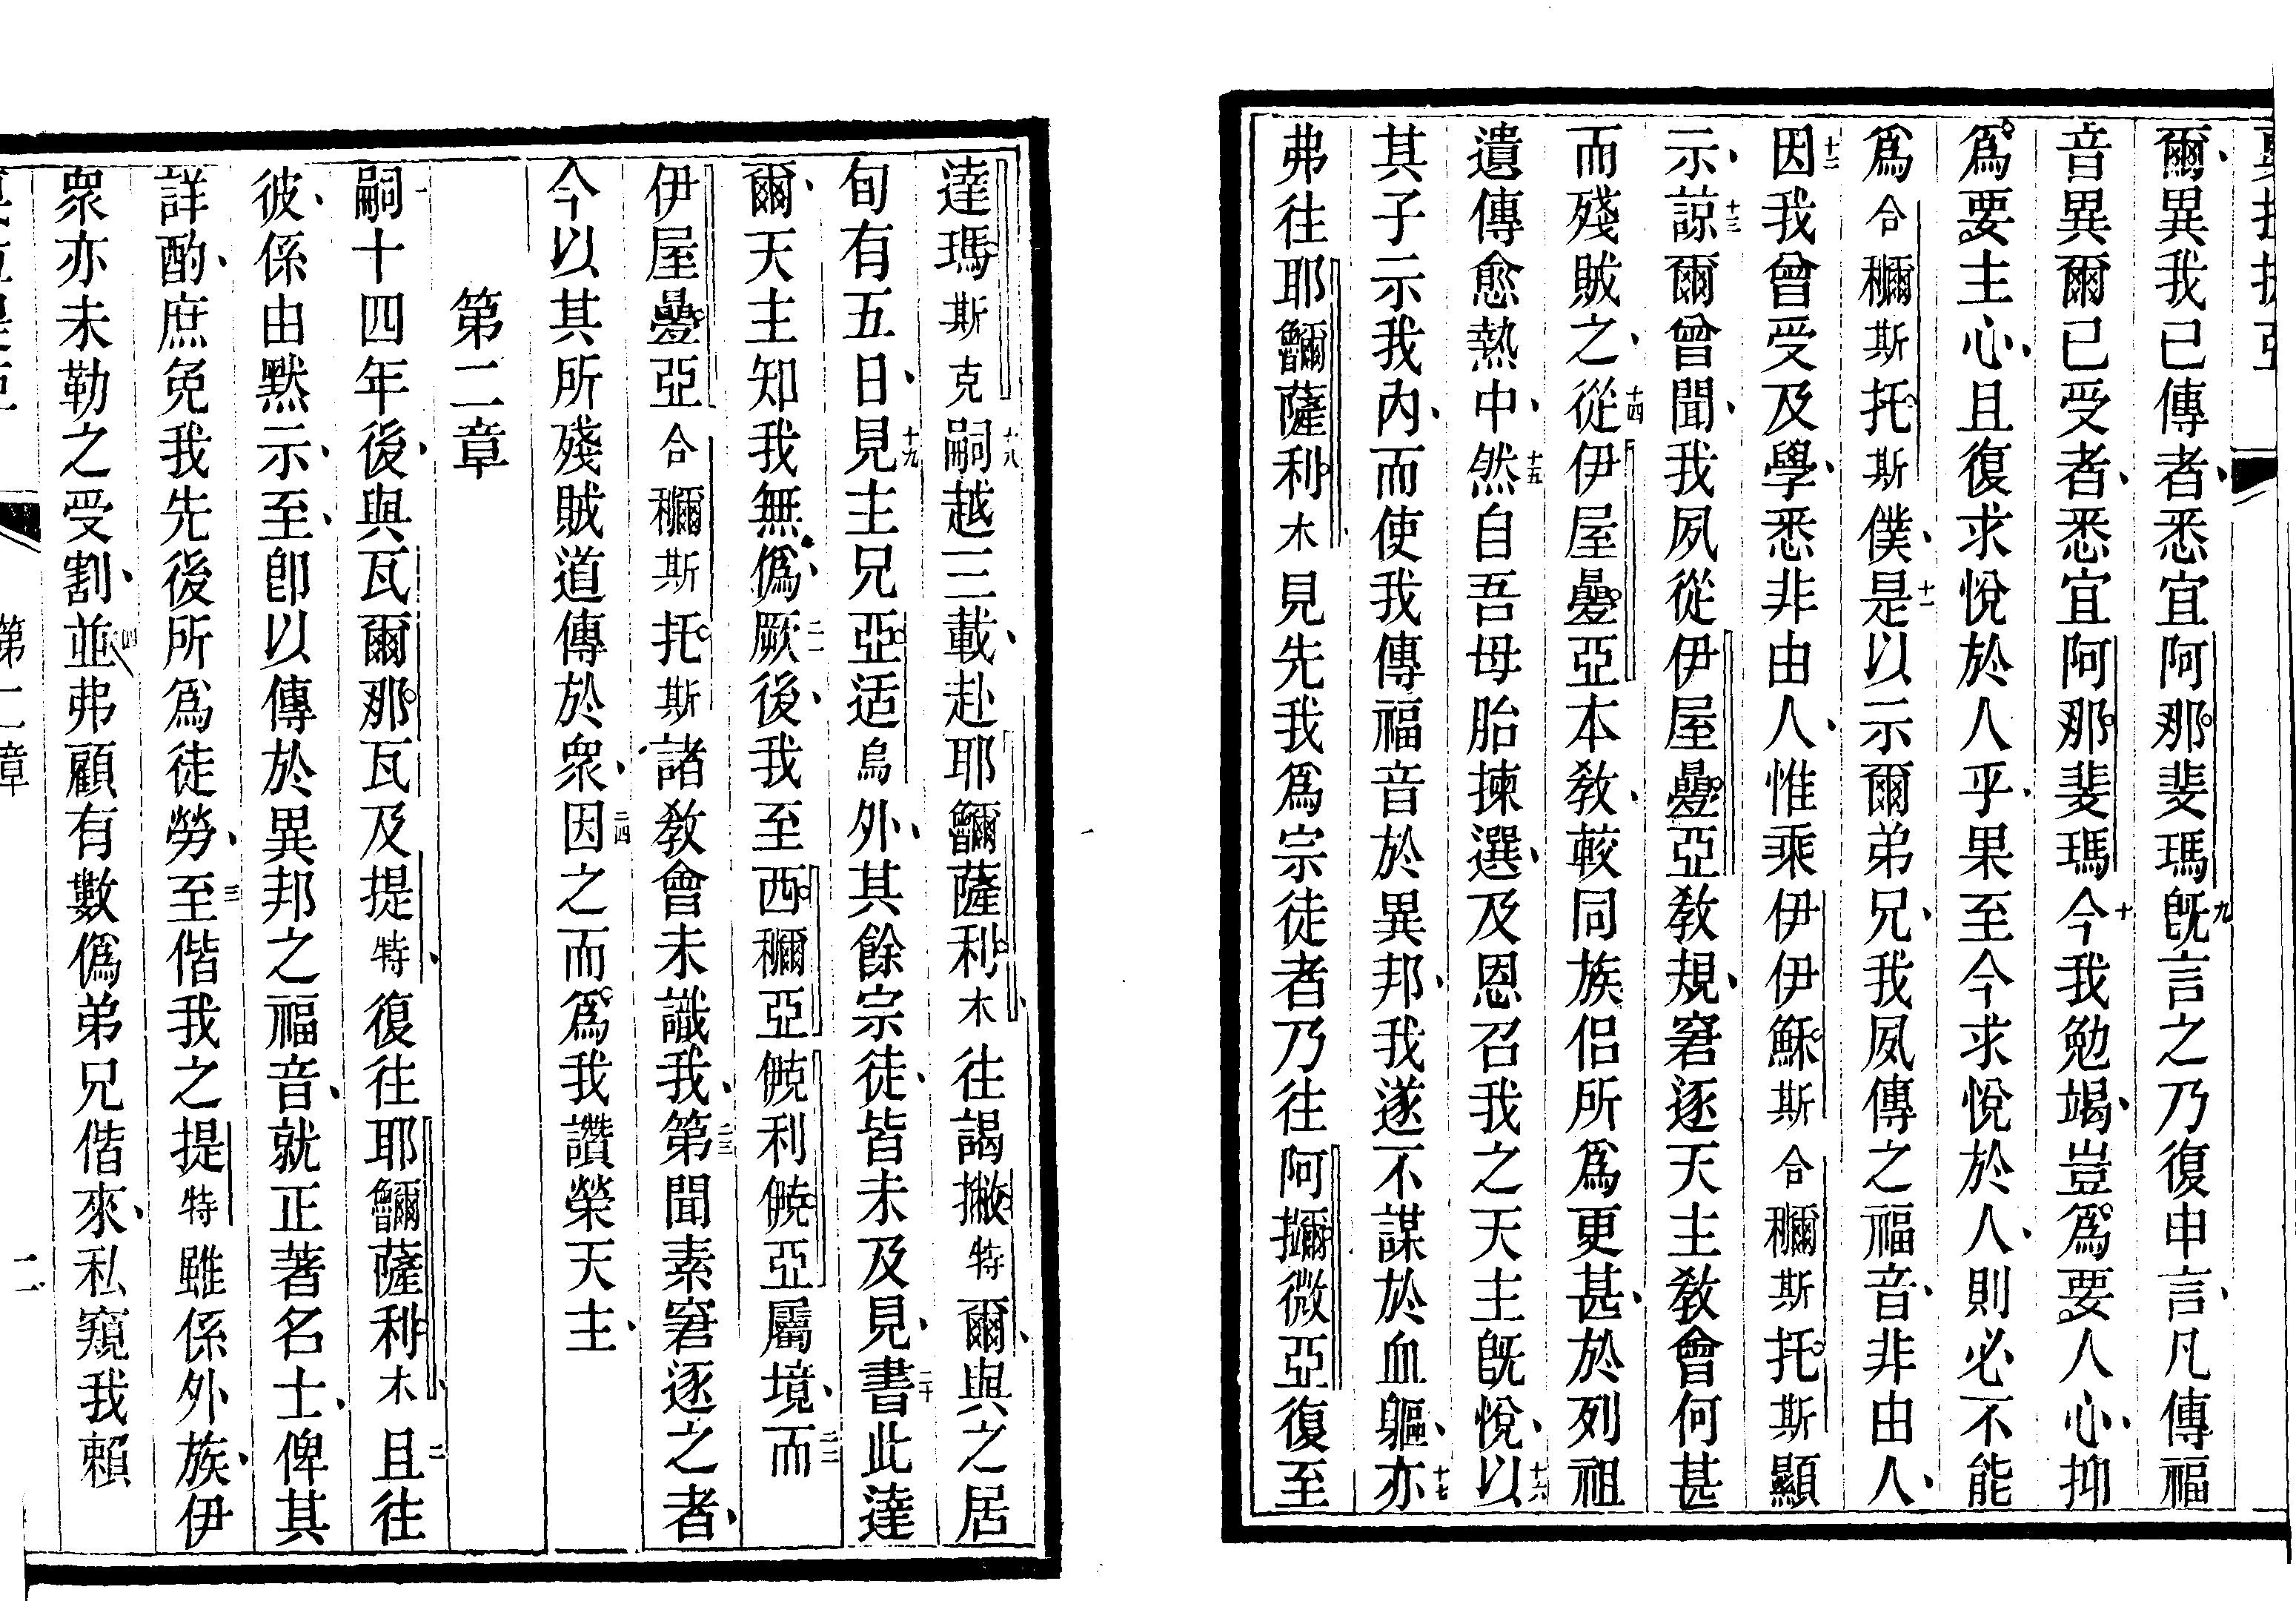 爾、異我已傳者、悉宜阿那斐瑪九旣言之乃復申言、凡傳福
音異爾已受者、悉宜阿那斐瑪十今我勉竭、豈爲要人心、抑
爲要主心、且復求悅於人乎、果至今求悅於人、則必不能
爲合穪斯托斯僕、十一是以示爾弟兄、我夙傳之福音、非由人、
十二因我曾受及學、悉非由人、惟乘伊伊穌斯合穪斯托斯顯
示、十三諒爾曾聞、我夙從伊屋疊亞敎規、窘逐天主敎會何甚
而殘賊之、十四從伊屋疊亞本敎、較同族侶所爲更甚、於列祖
遺傳愈熱中、十五然自吾母胎揀選、及恩召我之天主旣悅、十六以
其子示我內、而使我傳福音於異邦、我遂不謀於血軀、十七亦
弗往耶薩利木見先我爲宗徒者乃往阿微亞復至
達瑪斯克十八嗣越三載、赴耶薩利木、往謁撇特爾、與之居
旬有五日、十九見主兄亞适烏外、其餘宗徒、皆未及見、二十書此達
爾、天主知我無僞、二一厥後、我至西穪亞利亞屬境、二二而
伊屋疊亞合穪斯托斯諸敎會未識我、二三第聞素窘逐之者、
今以其所殘賊道傳於衆、二四因之而爲我讚榮天主、
第二章
一嗣十四年後、與瓦爾那瓦及提特、復往耶薩利木、二且往
彼、係由默示、至、卽以傳於異邦之福音、就正著名士、俾其
詳酌、庶免我先後所爲徒勞、三至偕我之提特雖係外族、伊
衆亦未勒之受割、四並弗顧有數僞弟兄偕來、私窺我賴
第二章
二